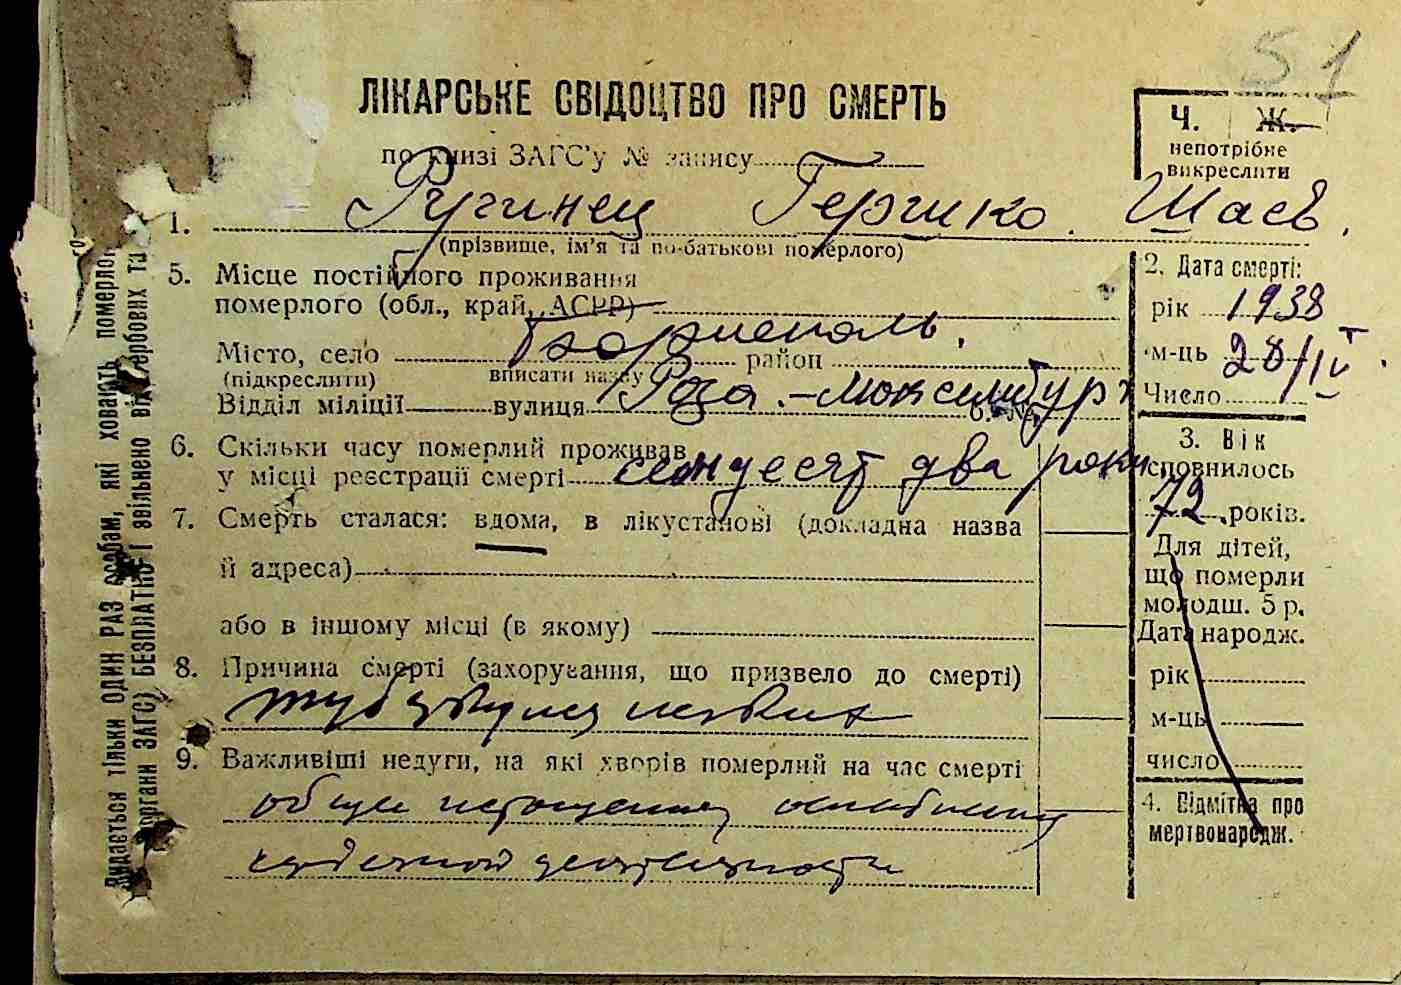 51
ЛІКАРСЬКЕ СВІДОЦТВО ПРО СМЕРТЬ
по книзі ЗАГС'у № запису
Ч. Ж.
непотрібне
викреслити
1. Ругинец Гершко Шаев.
(прізвище, ім'я та по-батькові померлого)
5. Місце постійного проживання
померлого (обл., край, АСРР)
Місто, село Бориспол­ь. район
(підкреслити) вписати назву
Відділ міліції вулиця Роза-Люксембург б. №
6. Скільки часу померлий проживав
у місці реєстрації смерті семдесят два роки
7. Смерть сталася: вдома, в лікустанові (докладна назва
й адреса)
або в іншому місці (в якому)
8. Причина смерті (захорування, що призвело до смерті)
туберкулез легких
9. Важливіші недуги, на які хворів померлий на час смерті
общее истощение ослабление
сердечной деятельности
2. Дата смерті:
рік 1938
м-ць 28/IV
Число
3. Вік
сповнилось
72 років.
Для дітей,
що померли
молодш. 5 р.
Дата народж.
рік
м-ць
число
4. Відмітка про
мертвонародж.
Видається тільки ОДИН РАЗ особам, які ховають померлого
органи ЗАГС) БЕЗПЛАТНО і звільнено від гербових та